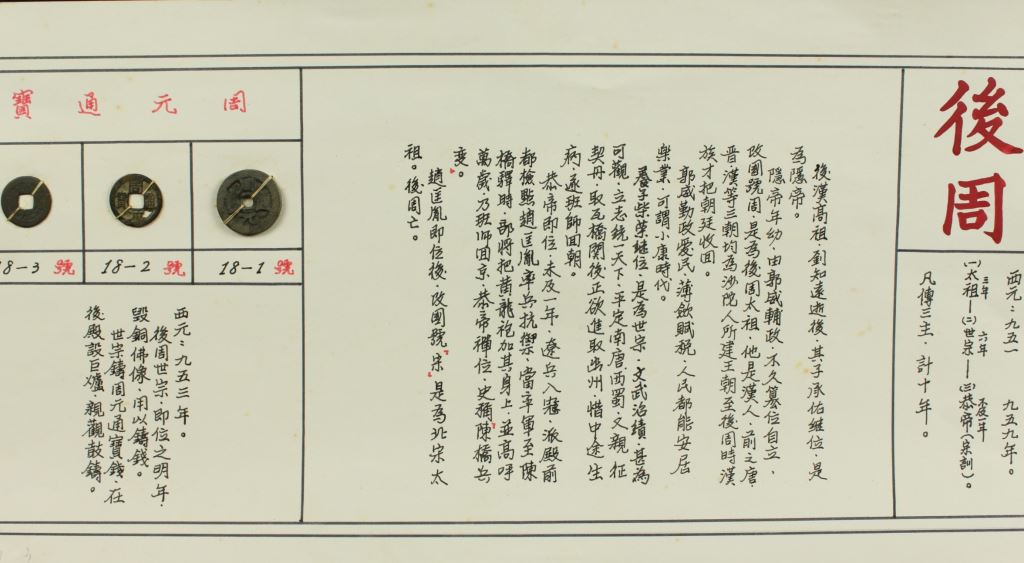 後周
西元：九五一　九五九年。
三年　六年　不及一年
(一)太祖—(二)世宗—(三)恭帝（宗訓）。
凡傳三主，計十年。
後漢高祖，劉知遠逝後，其子承佑继位，是
為隱帝。
隱帝年幼，由郭威輔政，不久篡位自立，
改國號周，是為後周太祖，他是漢人，前之唐，
晋，漢等三朝均為沙陀人所建王朝至後周時漢
族才把朝廷收回。
郭威勤政愛民，薄歛賦税，人民都能安居
樂業，可謂小康時代。
養子柴榮继位，是為世宗，文武治績，甚為
可觀，立志統一天下，平定南唐，西蜀，又親征
契丹，取瓦橋関後正欲進取幽州，惜中途生
病，逐班師回朝。
恭帝即位，未及一年，遼兵入寇，派殿前
都檢點趙匡胤率兵抗禦，當率軍至陳
橋驛時，部將把黄龍袍加其身上，並高呼
萬歲，乃班師回京，恭帝禪位，史稱"陳橋兵
变"。
趙匡胤即位後，改國號"宋"是為北宋太
祖。後周亡。
周元通寶
18-1 號
18-2 號
18-3 號
西元：九五三年。
後周世宗，即位之明年，
毀銅佛像，用以鑄錢。
世宗鑄周元通寶錢，在
後殿設巨爐，親觀鼓鑄。